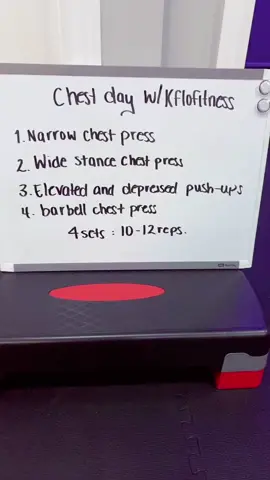 Chest day w/Kflofitness
1. Narrow chest press
2. Wide stance chest press
3. Elevated and depressed push-ups
4. barbell chest press
4 sets : 10-12 reps.